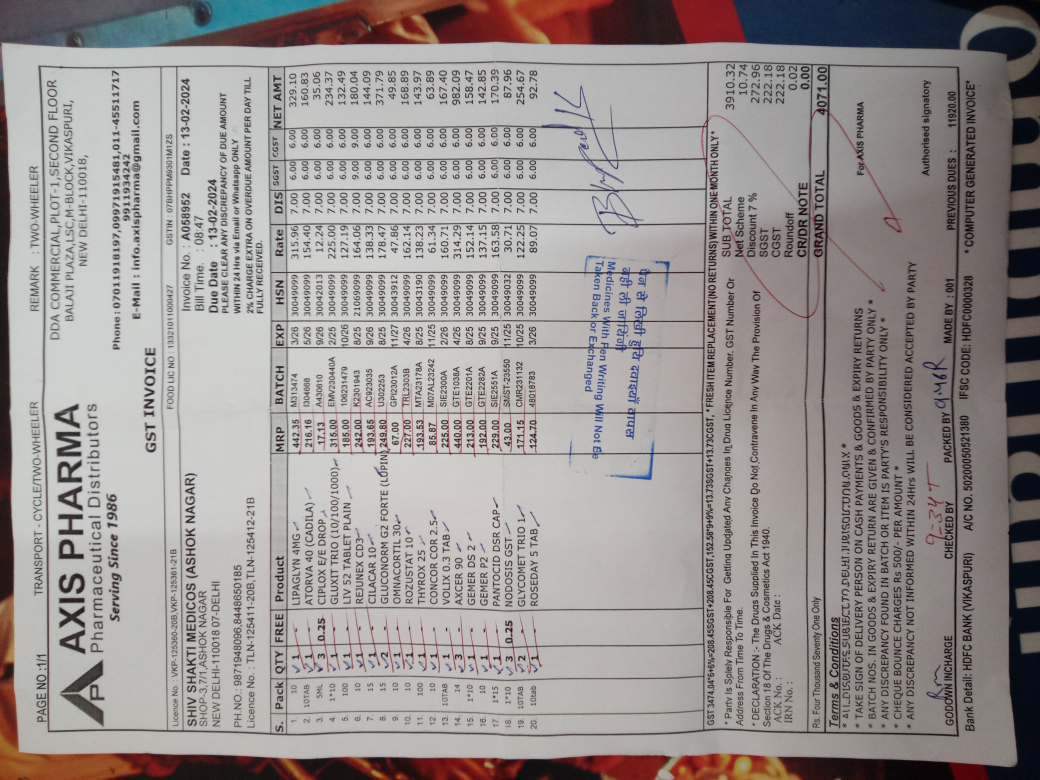 PAGE NO :1/1 TRANSPORT - CYCLE/TWO-WHEELER REMARK : TWO-WHEELER
AXIS PHARMA
Pharmaceutical Distributors
Serving Since 1986
DDA COMMERCIAL, PLOT-1,SECOND FLOOR
BALAJI PLAZA,LSC,M-BLOCK,VIKASPURI,
NEW DELHI-110018,
Phone: 07011918197,09971915481,011-45511717
9911934242
E-Mail: info.axispharma@gmail.com
GST INVOICE
Licence No.: VKP-125360-20B,VKP-125361-21B FOOD LIC NO : 13321011000427 GSTIN : 07BHPPM9301M1ZS
SHIV SHAKTI MEDICOS (ASHOK NAGAR)
SHOP-3,7/1,ASHOK NAGAR
NEW DELHI-110018 07-DELHI
PH.NO.: 9871948096,8448650185
Licence No.: TLN-125411-20B,TLN-125412-21B
Invoice No.: A058952 Date : 13-02-2024
Bill Time. : 08:47
Due Date : 13-02-2024
PLEASE CLEAR ANY DISCREPANCY OF DUE AMOUNT
WITHIN 24 Hrs Via Email or Whatsapp ONLY
2% CHARGE EXTRA ON OVERDUE AMOUNT PER DAY TILL
FULLY RECEIVED.
S. Pack QTY FREE Product MRP BATCH EXP HSN Rate DIS SGST CGST NET AMT
1. 10 1 - LIPAGLYN 4MG 442.35 M313474 3/26 30049099 315.96 7.00 6.00 6.00 329.10
2. 10TAB 1 - ATORVA 40 (CADILA) 216.16 ID04068 5/26 30049099 154.40 7.00 6.00 6.00 160.83
3. 5ML 3 0.25 CIPLOX E/E DROP 17.13 A430610 9/26 30042013 12.24 7.00 6.00 6.00 35.06
4. 1*10 1 - GLUXIT TRIO (10/100/1000) 315.00 EMV230440A 2/25 30049099 225.00 7.00 6.00 6.00 234.37
5. 100 1 - LIV 52 TABLET PLAIN 185.00 106231479 10/26 30049099 127.19 7.00 6.00 6.00 132.49
6. 10 1 - REJUNEX CD3 242.00 K2301943 8/25 21069099 164.06 7.00 9.00 9.00 180.04
7. 15 1 - CILACAR 10 193.65 AC923035 9/26 30049099 138.33 7.00 6.00 6.00 144.09
8. 15 2 - GLUCONORM G2 FORTE (LUPIN) 249.80 U302253 8/25 30049099 178.47 7.00 6.00 6.00 371.79
9. 10 1 - OMNACORTIL 30 67.00 GPI23012A 11/27 30043912 47.86 7.00 6.00 6.00 49.85
10. 10 1 - ROZUSTAT 10 227.00 TRL2303B 4/26 30049099 162.14 7.00 6.00 6.00 168.89
11. 100 1 - THYROX 25 193.53 MTA2378A 8/25 30043190 138.23 7.00 6.00 6.00 143.97
12. 10 1 - CONCOR COR 2.5 85.87 M07AL23242 11/25 30049099 61.34 7.00 6.00 6.00 63.89
13. 10TAB 1 - VOLIX 0.3 TAB 225.00 SIE2300A 2/26 30049099 160.71 7.00 6.00 6.00 167.40
14. 14 3 - AXCER 90 440.00 GTE1038A 4/26 30049099 314.29 7.00 6.00 6.00 982.09
15. 1*10 1 - GEMER DS 2 213.00 GTE2201A 8/25 30049099 152.14 7.00 6.00 6.00 158.47
16. 10 1 - GEMER P2 192.00 GTE2282A 9/25 30049099 137.15 7.00 6.00 6.00 142.85
17. 1*15 1 - PANTOCID DSR CAP 229.00 SIE2551A 9/25 30049099 163.58 7.00 6.00 6.00 170.39
18. 1*10 3 0.25 NODOSIS GST 43.00 SMST-23550 11/25 30049032 30.71 7.00 6.00 6.00 87.96
19. 10TAB 2 - GLYCOMET TRIO 1 171.15 CMR231132 10/25 30049099 122.25 7.00 6.00 6.00 254.67
20. 10tab 1 - ROSEDAY 5 TAB 124.70 48018783 3/26 30049099 89.07 7.00 6.00 6.00 92.78
पेन से लिखी हुई दवाइयाँ वापस
नहीं ली जायेंगी
Medicines With Pen Writing Will Not Be
Taken Back or Exchanged
GST 3474.04*6+6%=208.45SGST+208.45CGST,152.58*9+9%=13.73SGST+13.73CGST, * FRESH ITEM REPLACEMENT(NO RETURNS)WITHIN ONE MONTH ONLY *
* Party Is Solely Responsible For Getting Updated Any Changes In Drug Licence Number, GST Number Or
Address From Time To Time.
* DECLARATION :- The Drugs Supplied In This Invoice Do Not Contravene In Any Way The Provision Of
Section 18 Of The Drugs & Cosmetics Act 1940.
ACK No.: ACK Date :
IRN No. :
SUB TOTAL 3910.32
Net Scheme 10.74
Discount 7 % 272.96
SGST 222.18
CGST 222.18
Roundoff 0.02
CR/DR NOTE 0.00
GRAND TOTAL 4071.00
Rs. Four Thousand Seventy One Only
Terms & Conditions
* ALL DISPUTES SUBJECT TO DELHI JURISDICTION ONLY *
* TAKE SIGN OF DELIVERY PERSON ON CASH PAYMENTS & GOODS & EXPIRY RETURNS
* BATCH NOS. IN GOODS & EXPIRY RETURN ARE GIVEN & CONFIRMED BY PARTY ONLY *
* ANY DISCREPANCY FOUND IN BATCH OR ITEM IS PARTY'S RESPONSIBILITY ONLY *
* CHEQUE BOUNCE CHARGES Rs 500/- PER AMOUNT *
* ANY DISCREPANCY NOT INFORMED WITHIN 24Hrs WILL BE CONSIDERED ACCEPTED BY PARTY
For AXIS PHARMA
Authorised signatory
GODOWN INCHARGE CHECKED BY PACKED BY MADE BY : 001 PREVIOUS DUES : 11920.00
Bank Detail: HDFC BANK (VIKASPURI) A/C NO. 50200050521380 IFSC CODE: HDFC0000328 * COMPUTER GENERATED INVOICE*